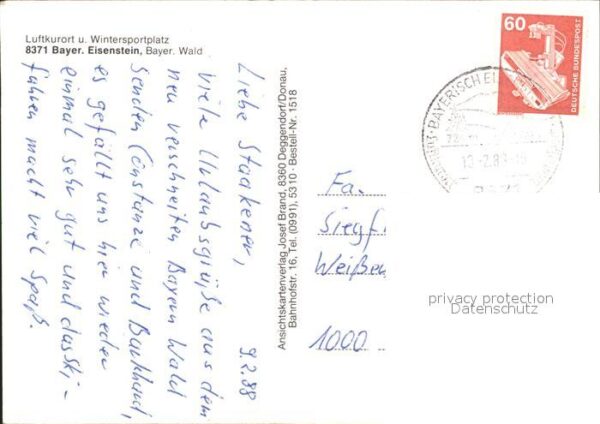 Luftkurort u. Wintersportplatz
8371 Bayer. Eisenstein, Bayer. Wald
9.2.88
Liebe Staakener,
viele Urlaubsgrüße aus dem
neu verschneiten Bayern Wald
senden Constanze und Burkhard,
es gefällt uns hier wieder
einmal sehr gut und das Ski-
fahren macht viel Spaß.
Ansichtskartenverlag Josef Brand, 8360 Deggendorf/Donau,
Bahnhofstr. 16, Tel. (0991) 5310 · Bestell-Nr. 1518
60
DEUTSCHE BUNDESPOST
BAYERISCH EI
Fa.
Siegf
Weißen
1000
privacy protection
Datenschutz